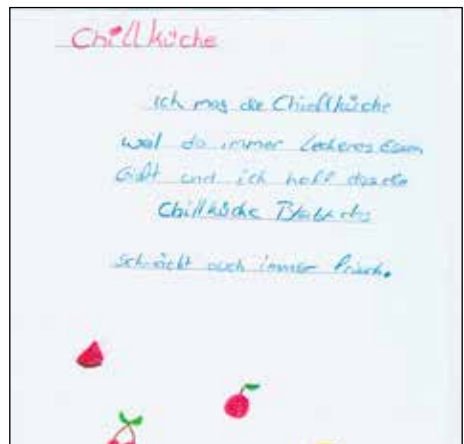 Chillküche
ich mag die Chiellküche
weil da immer leckeres Essen
Gibt und ich hoff das die
Chillküche Bleibt
schmeckt auch immer frisch.